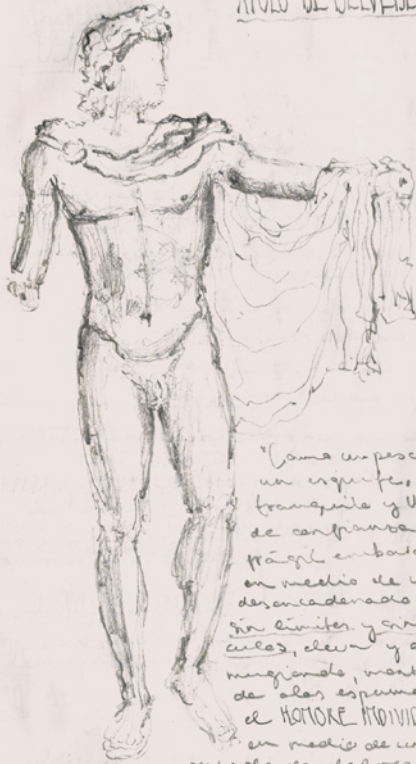 APOLO DE BELVEDE
"Como un pesc
un esquife,
tranquilo y ll
de confianza
frágil embarc
en medio de u
desencadenado
sin límites y sin
culos, eleva y a
mugiendo, mont
de olas espumo
el HOMBRE INDIVID
en medio de un